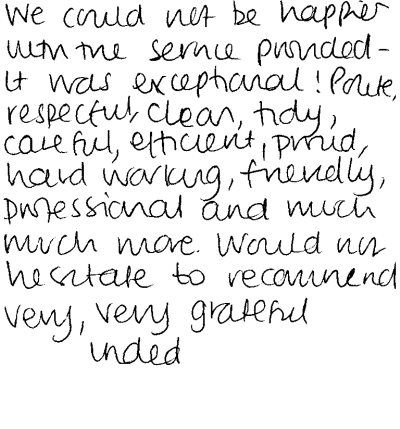 We could not be happier
with the service provided -
it was exceptional! Polite,
respectful, clean, tidy,
careful, efficient, proud,
hard working, friendly,
professional and much
much more. Would not
hesitate to recommend
very, very grateful
indeed